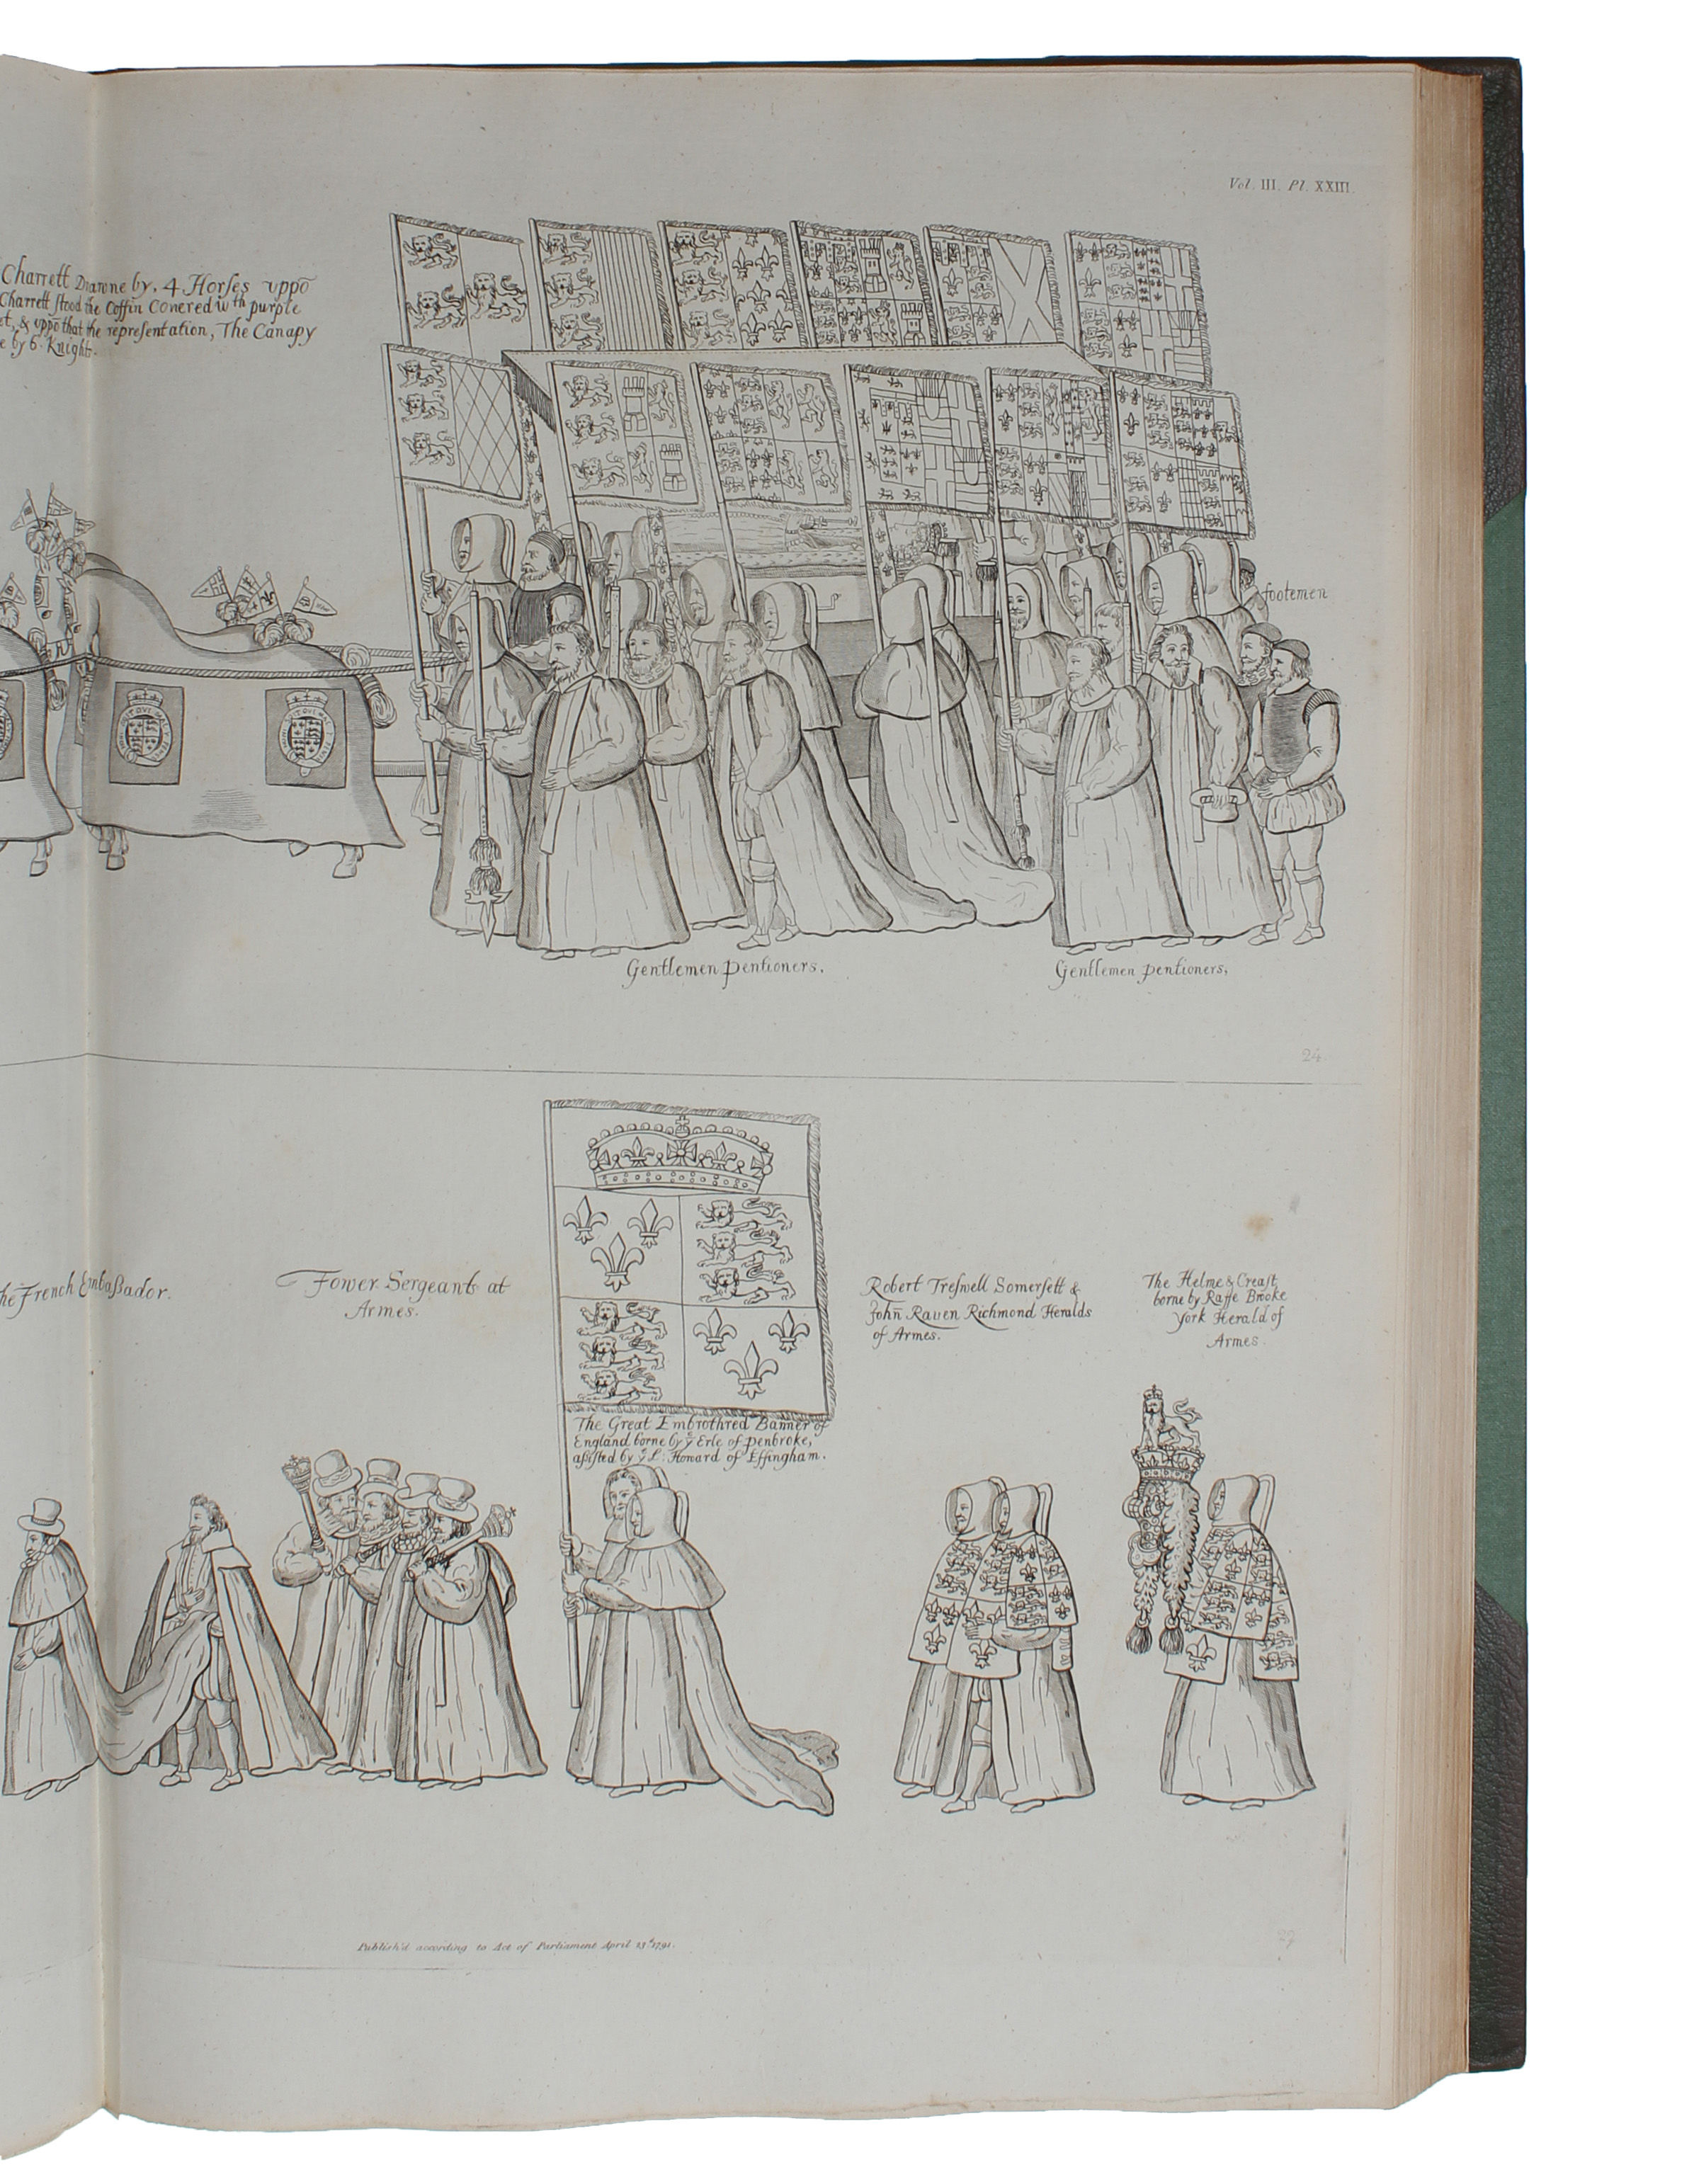 Vol. III. Pl. XXIII.
Charrett Drawne by. 4 Horses uppō
Charrett stood the Coffin Couered wth purple
et, & uppō that the representation, The Canapy
e by 6. Knights.
footemen
Gentlemen pentioners,
Gentlemen pentioners,
24.
he French Embaßador.
Fower Sergeants at
Armes.
The Great Embrothred Banner of
England borne by ye Erle of penbroke,
assisted by ye L: Howard of Effingham.
Robert Treswell Somersett &
John Rauen Richmond Heralds
of Armes.
The Helme & Creast
borne by Raffe Brooke
York Herald of
Armes.
Publish'd according to Act of Parliament April 23d 1791.